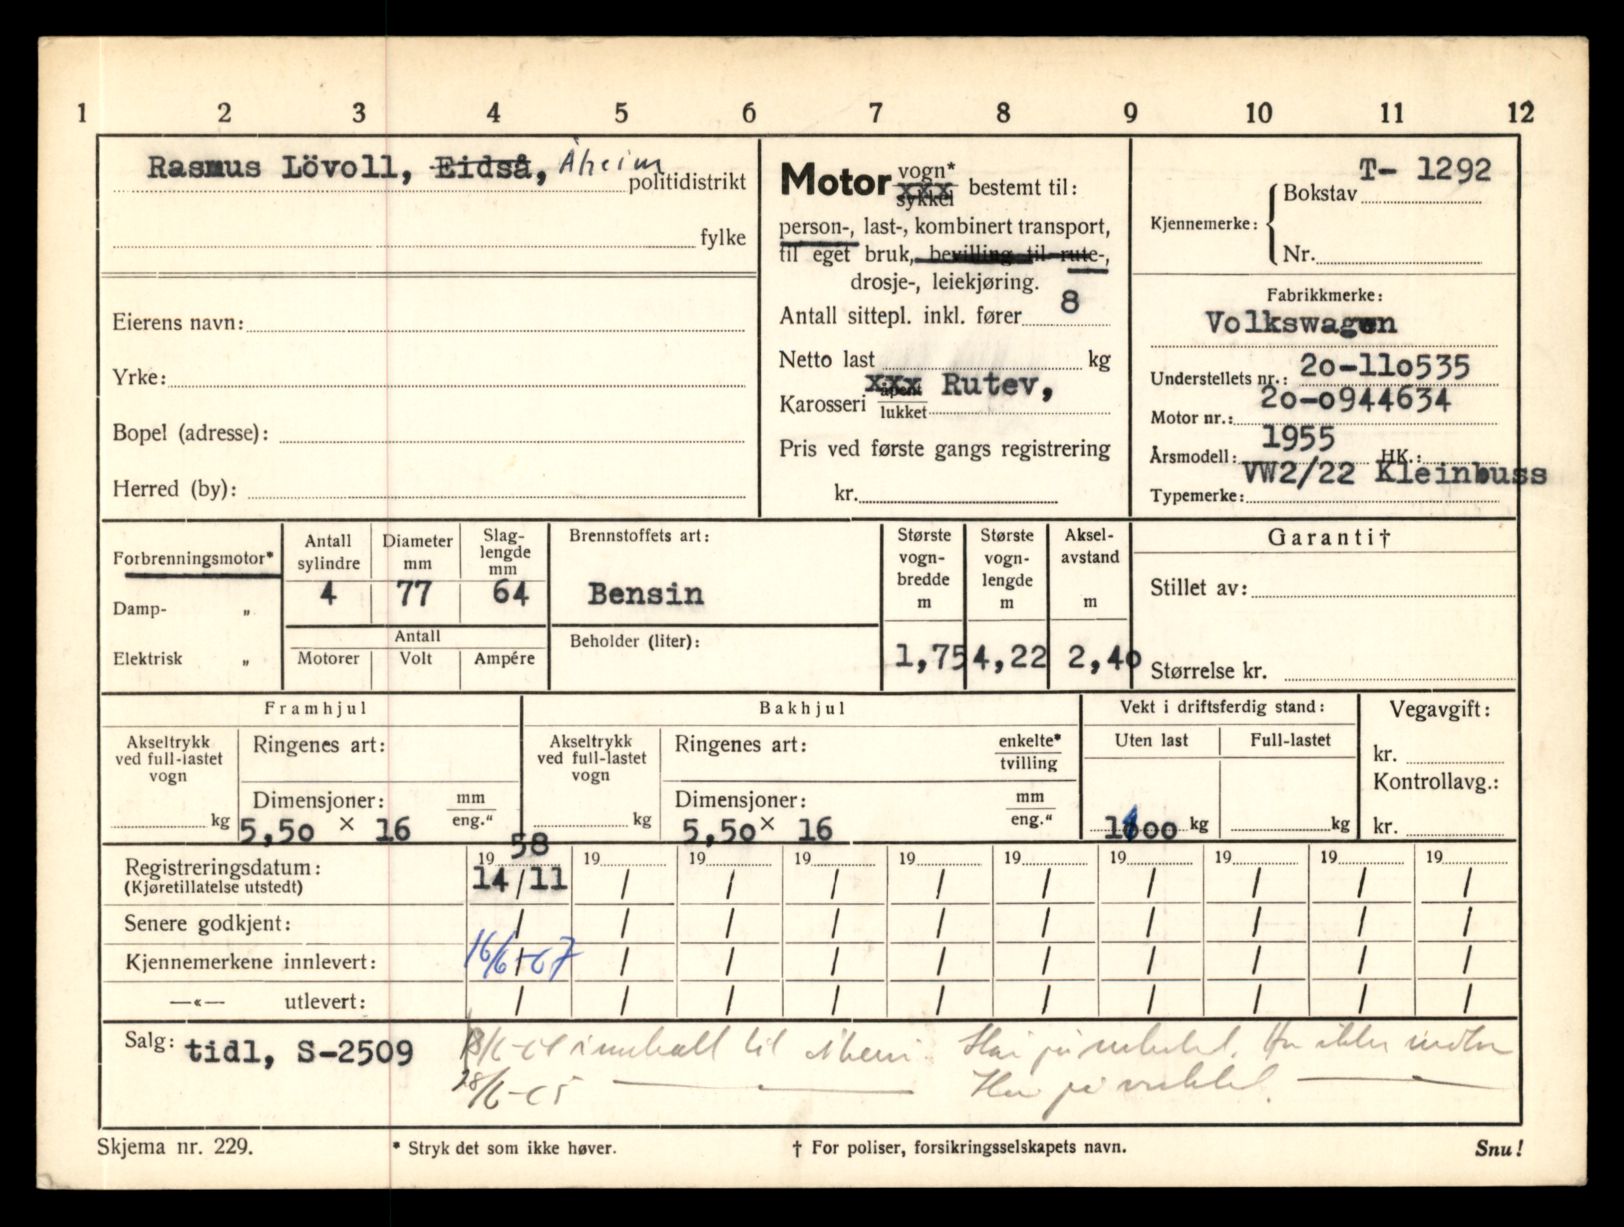 1 2 3 4 5 6 7 8 9 10 11 12
Rasmus Lövoll, Eidså, Åheim politidistrikt
fylke
Eierens navn:
Yrke:
Bopel (adresse):
Herred (by):
Motor vogn* xxx sykkel bestemt til:
person-, last-, kombinert transport,
til eget bruk, bevilling til rute-,
drosje-, leiekjøring.
Antall sittepl. inkl. fører 8
Netto last kg
Karosseri xxx åpent lukket Rutev,
Pris ved første gangs registrering
kr.
T- 1292
Kjennemerke: Bokstav
Nr.
Fabrikkmerke:
Volkswagen
Understellets nr.: 2o-11o535
Motor nr.: 2o-o944634
Årsmodell: 1955 HK.:
Typemerke: VW2/22 Kleinbuss
Forbrenningsmotor*
Damp- „
Elektrisk „
Antall sylindre
4
Diameter mm
77
Slag-
lengde
mm
64
Antall
Motorer Volt Ampére
Brennstoffets art:
Bensin
Beholder (liter):
Største
vogn-
bredde
m
1,75
Største
vogn-
lengde
m
4,22
Aksel-
avstand
m
2,4o
Garanti†
Stillet av:
Størrelse kr.
Framhjul
Akseltrykk
ved full-lastet
vogn
kg
Ringenes art:
Dimensjoner: mm eng."
5,5o × 16
Bakhjul
Akseltrykk
ved full-lastet
vogn
kg
Ringenes art: enkelte* tvilling
Dimensjoner: mm eng."
5,5o × 16
Vekt i driftsferdig stand:
Uten last Full-lastet
kg kg
Vegavgift:
kr.
Kontrollavg.:
kr.
Registreringsdatum: 19 58 19 19 19 19 19 19 19 19 19
(Kjøretillatelse utstedt) 14/11 / / / / / / / / /
Senere godkjent: / / / / / / / / / /
Kjennemerkene innlevert: 16/6-67 / / / / / / / / /
—«— utlevert: / / / / / / / / / /
Salg: tidl, S-2509
til Har på
Har på
Skjema nr. 229. * Stryk det som ikke høver. † For poliser, forsikringsselskapets navn. Snu!